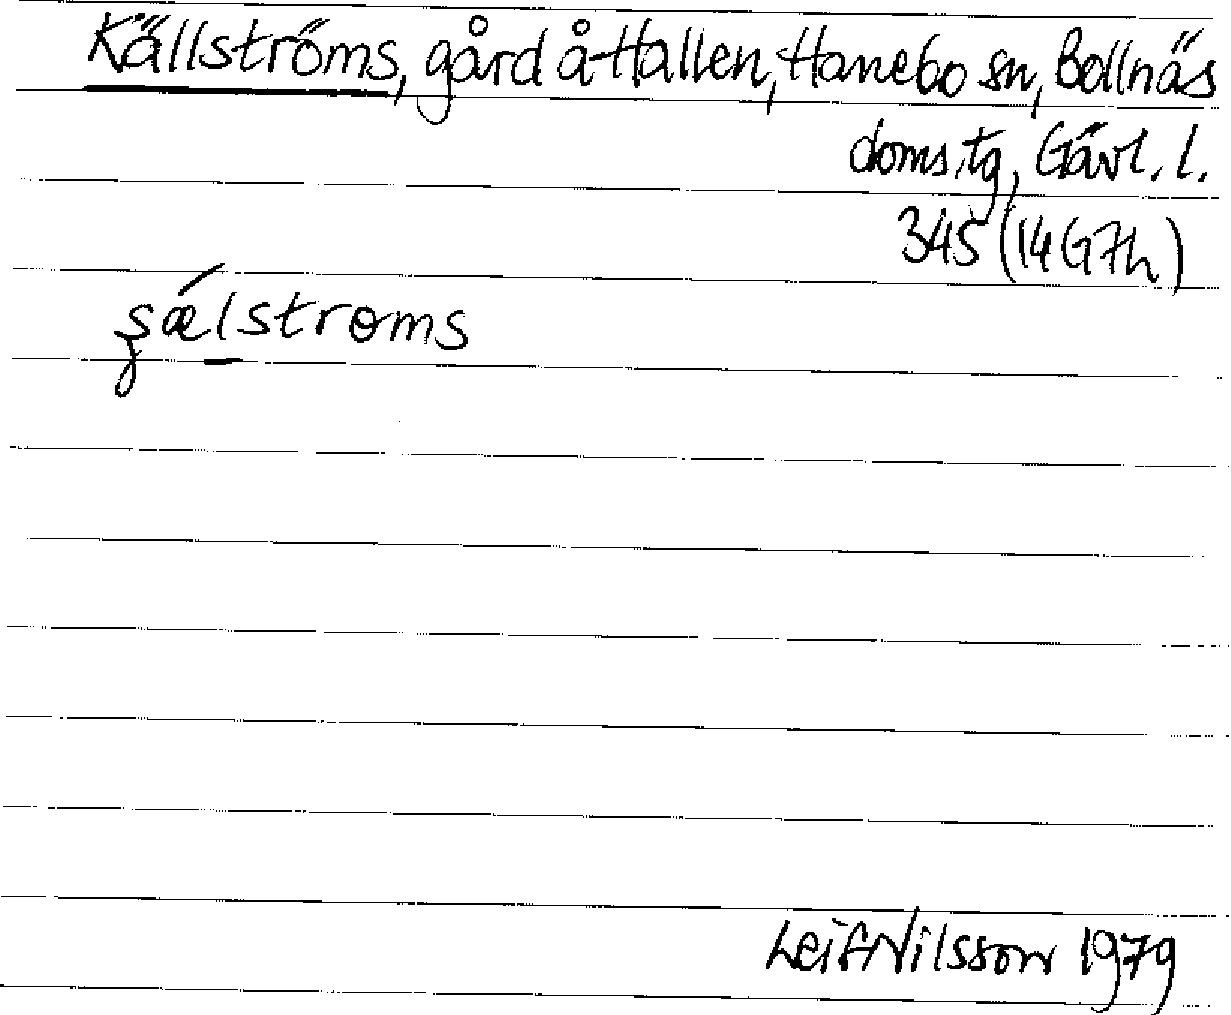 Källströms, gård å Hallen, Hanebo sn, Bollnäs
doms.tg, Gävl. l.
345 (14G7h)
s̡ǽl̲stroms
Leif Nilsson 1979